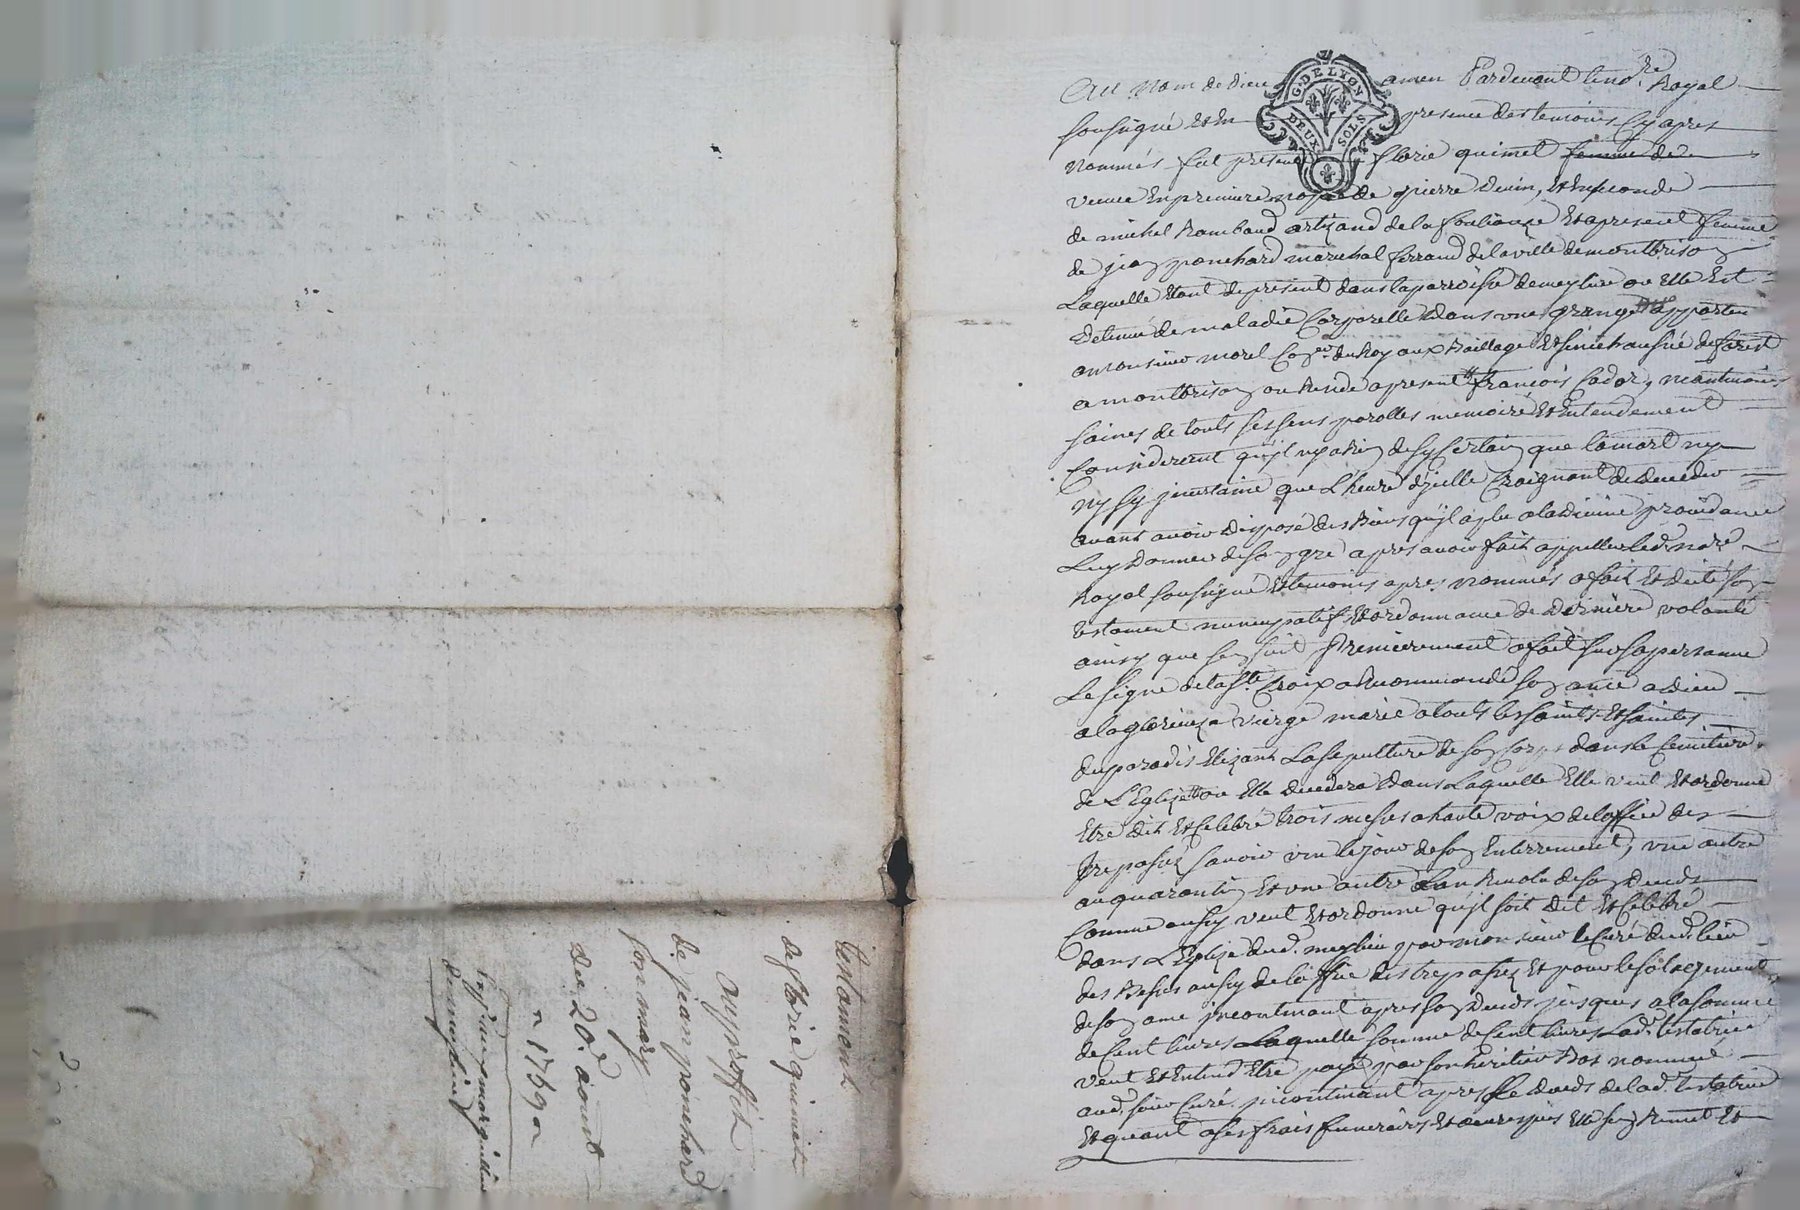 Au Nom de Dieu amen Pardevant le no.re Royal
soussigné et en presence des temoins cy apres
nommés fut presente florie quimet femme de
veuve en premiere nopce de pierre Devin, et en seconde
de michel Rambaud artizand de la fouliouze et apresent femme
de jean ponchard marechal ferrand de la ville de montbrison
Laquelle etant de present dans la parroisse de meylieu ou elle Est
detenue de maladie Corporelle dans une grange apparten
a monsieur morel Con.er du Roy aux Baillage et senechaussée de forest
a montbrison ou Reside apresent françois Cador, neantmoins
saines de touts ses sens parolles memoire et Entendement
Considerent qu'jl n'y a Rien de sy Certain que la mort ny
ny sy jncertaine que L'heure d'jcelle Craignant de deceder
avant avoir disposé des Biens qu'jl a plu a la divine providance
Luy donner de son gré apres avoir fait appeller led. no.re
Royal soussigné et temoins apres nommés a fait et dicté son
testament nuncupatif et ordonnance de derniere volonté
ainsy que sen suit Premierement a fait sur sa personne
Le signe de la s.te Croix a Recommandé son ame a Dieu
a la glorieuze vierge marie a touts les saints et saintes
du paradis Elizant La sepulture de son Corps dans le Cemitiere
de L'Eglize ou Elle decedera dans Laquelle Elle veut et ordonne
Etre dit et Celebré trois messes a haute voix de loffice des
trepassés savoir une le jour de son Enterrement, une autre
au quarantin et une autre a lan Revolu de son deceds
Comme aussy veut et ordonne qu'jl soit dit et Celebré
dans L'Eglize dud. meylieu par monsieur le Curé dud. lieu
des Messes aussy de loffice des trepassés et pour le solagement
de son ame jncontinant apres son deceds jusques a la somme
de Cent livres Laquelle somme de Cent livres Lad. testatrice
veut et Entend Etre payé par son heritier Bas nommé
aud. sieur Curé jncontinant apres Le deceds de lad. testatrice
Et quant a ses frais funeraires et œuvres pies Elle sen Remet Et
G. DE LYON
DEUX SOLS
testament
de florie quimet
au proffit
de jean ponchard
son mary
du 20.e aoust
1769
de meylieu